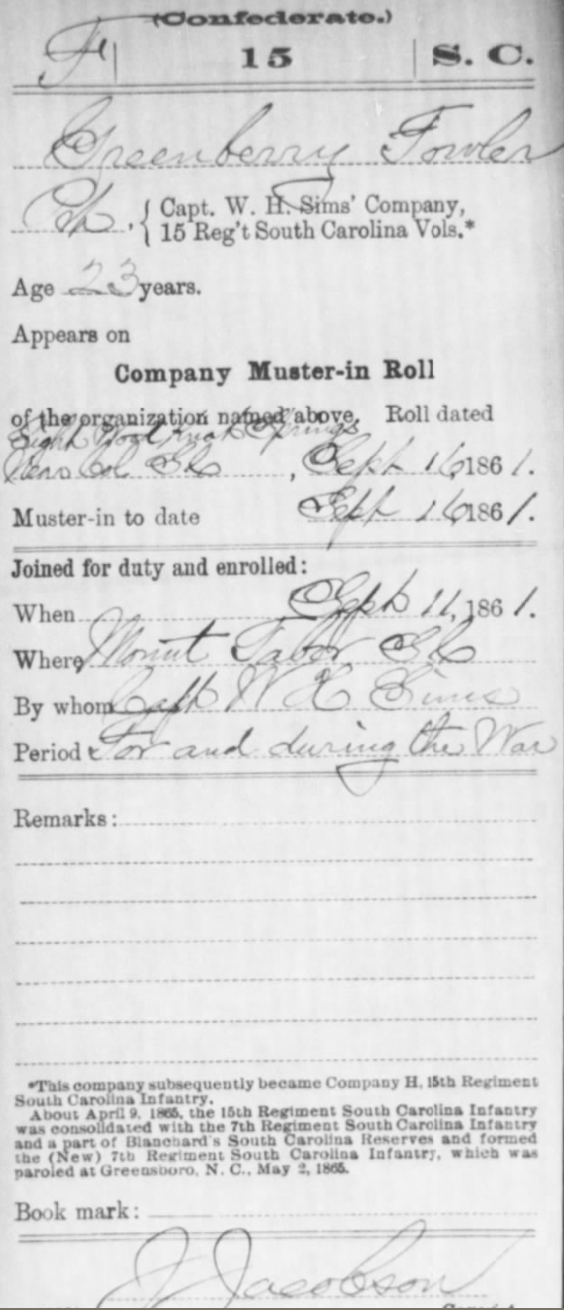 (Confederate.)
F | 15 | S. C.
Greenberry Fowler
Pvt, { Capt. W. H. Sims' Company,
15 Reg't South Carolina Vols.*
Age 23 years.
Appears on
Company Muster-in Roll
of the organization named above. Roll dated
Light Wood Knot Springs
Near Col SC, Sept 16, 1861.
Muster-in to date Sept 16, 1861.
Joined for duty and enrolled:
When Sept 11, 1861.
Where Mount Tabor SC
By whom Capt W H Sims
Period For and during the War
Remarks:
*This company subsequently became Company H, 15th Regiment
South Carolina Infantry.
About April 9, 1865, the 15th Regiment South Carolina Infantry
was consolidated with the 7th Regiment South Carolina Infantry
and a part of Blanchard's South Carolina Reserves and formed
the (New) 7th Regiment South Carolina Infantry, which was
paroled at Greensboro, N. C., May 2, 1865.
Book mark:
J Jacobson